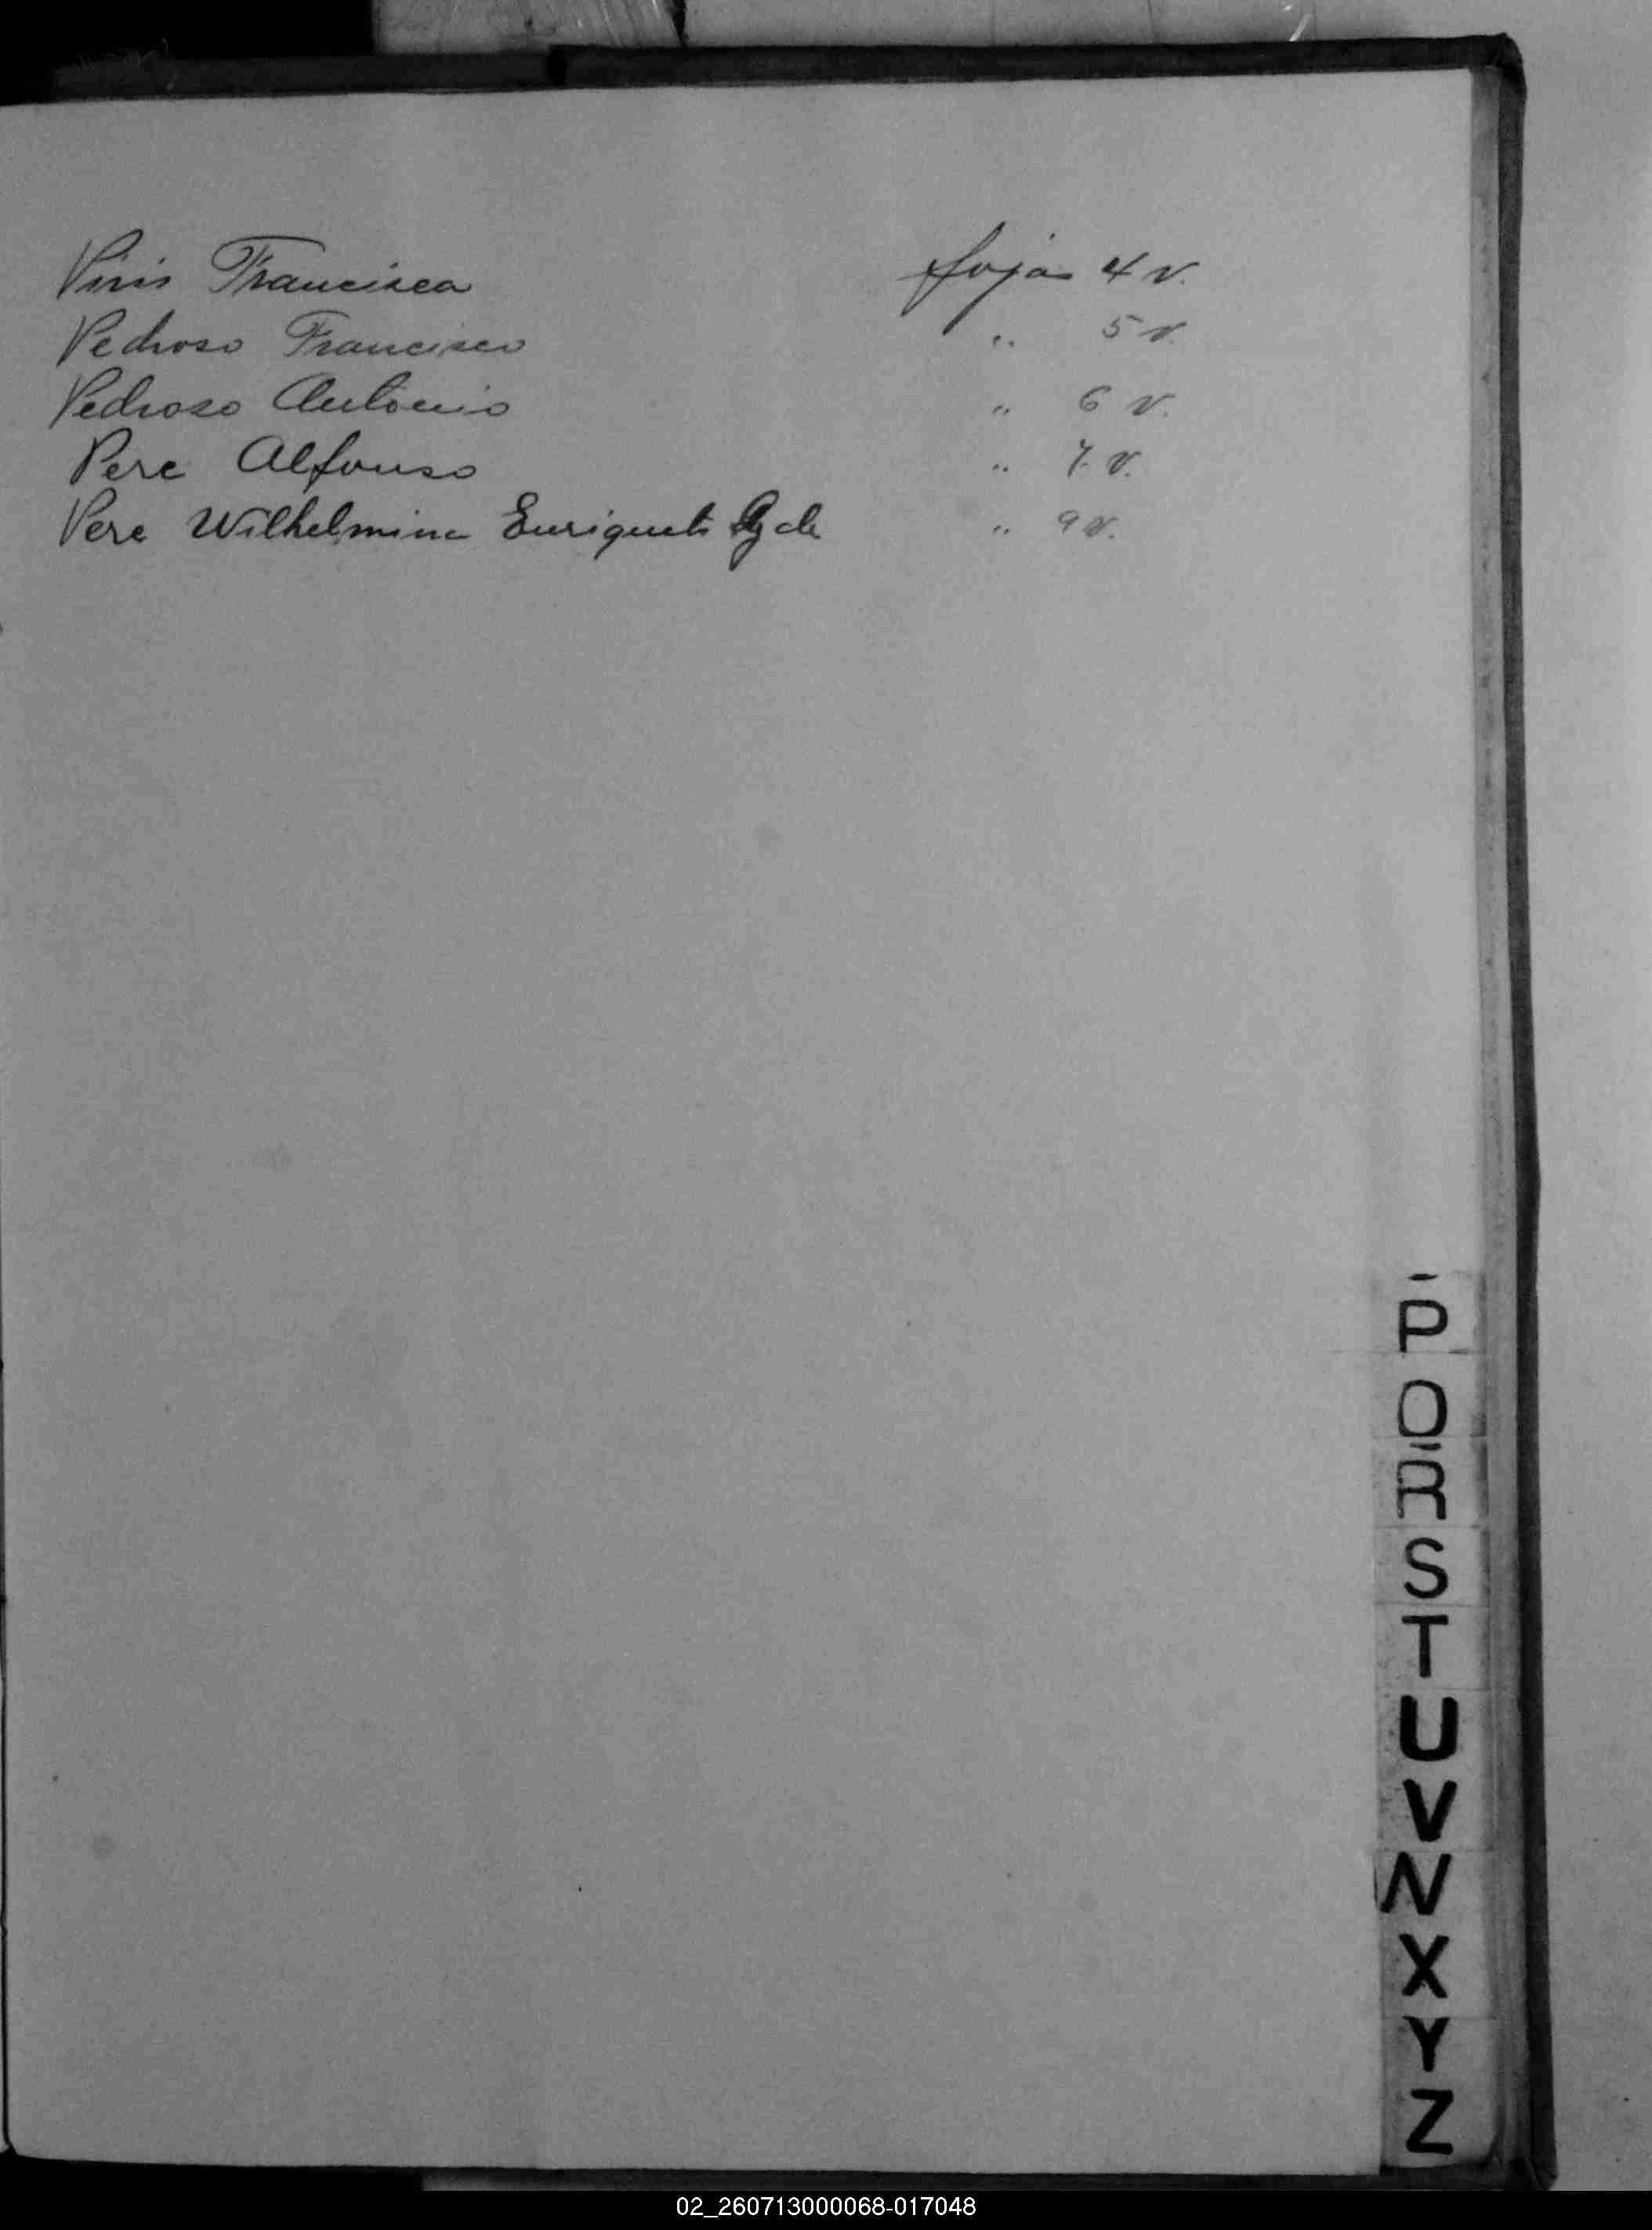 Piris Francisca fojas 4 v.
Pedroso Francisco " 5 v.
Pedroso Antonio " 6 v.
Pere Alfonso " 7 v.
Pere Wilhelmina Enriqueta de " 9 v.
P
Q
R
S
T
U
V
W
X
Y
Z
02_260713000068-017048